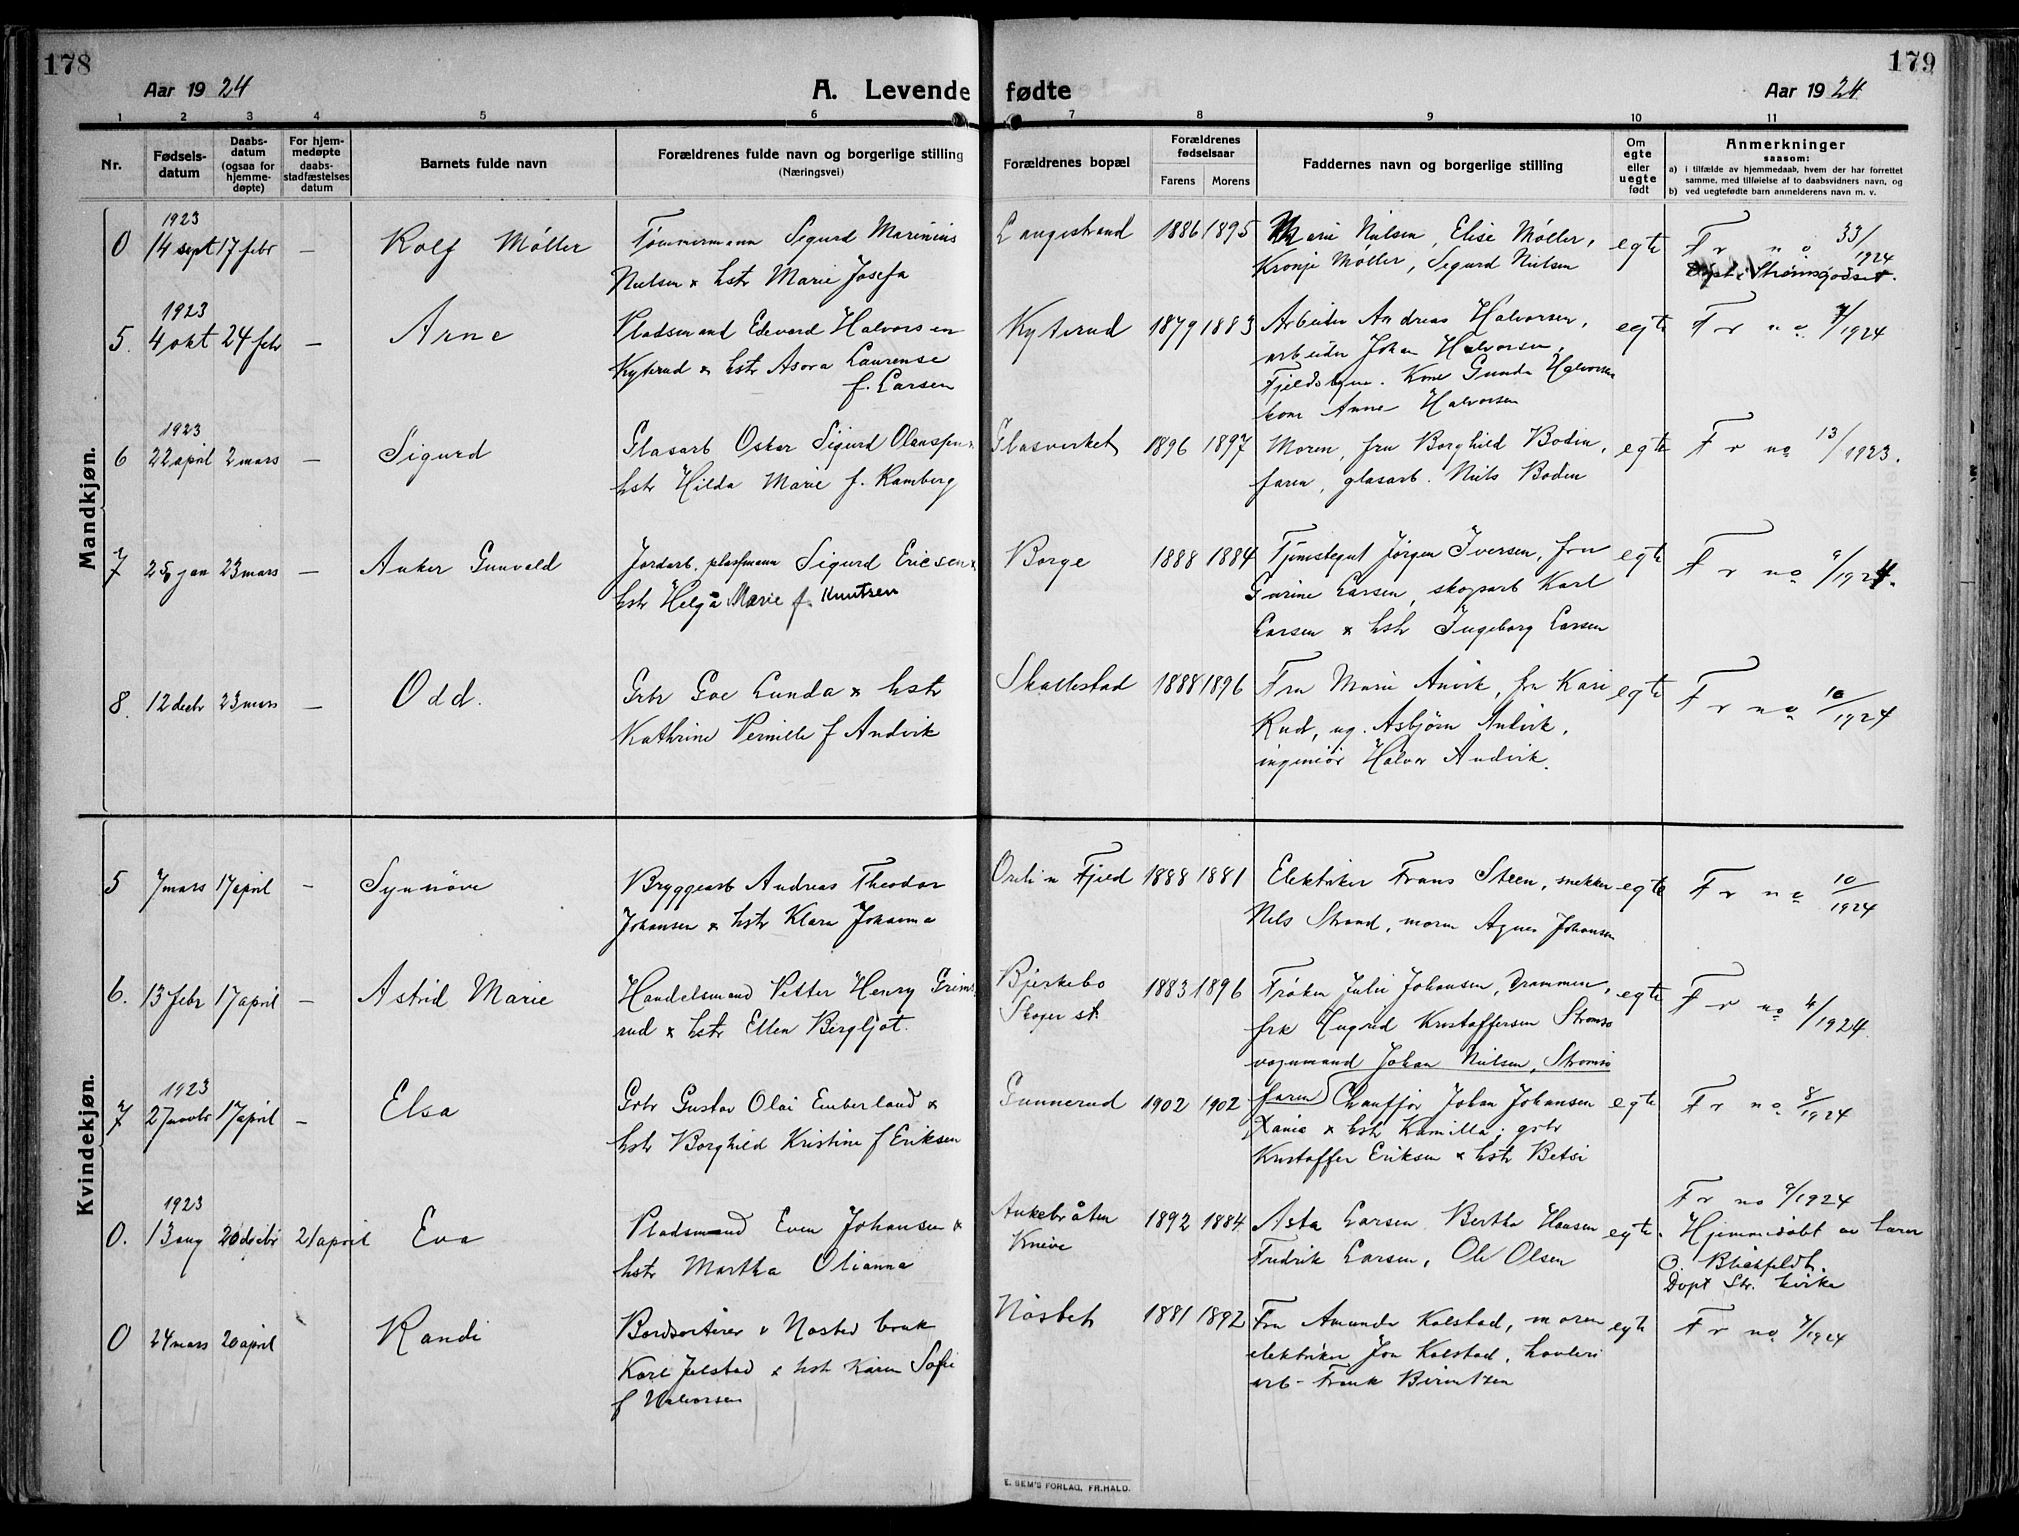 178
179
Aar 1924
A. Levende fødte
Aar 1924
1 2 3 4 5 6 7 8 9 10 11
Nr.
Fødsels-
datum
Daabs-
datum
(ogsaa for
hjemme-
døpte)
For hjem-
medøpte
daabs-
stadfæstelses
datum
Barnets fulde navn
Forældrenes fulde navn og borgerlige stilling
(Næringsvei)
Forældrenes bopæl
Forældrenes
fødselsaar
Farens Morens
Faddernes navn og borgerlige stilling
Om
egte
eller
uegte
født
Anmerkninger
saasom:
a) i tilfælde av hjemmedaab, hvem der har forrettet
samme, med tilføielse af to daabsvidners navn, og
b) ved uegtefødte barn anmelderens navn m. v.
Mandkjøn.
1923
0 14 sept 17 febr — Rolf Møller
Tømmermann Sigurd Marinius
Nielsen x hstr Marie Josefa
Langestrand 1886 1895
Marie Nielsen, Elise Møller,
Kronje Møller, Sigurd Nielsen
egte
F r no 33/1924
Døpt i Strømsgodset.
1923
5. 4 okt 24 febr — Arne
Pladsmand Edevard Halvorsen
Kyterud x hstr Asora Laurense
f. Larsen
Kyterud 1879 1883
Arbeider Andreas Halvorsen,
arbeider Johan Halvorsen,
Kone Gunda Halvorsen
kone Anne Halvorsen
egte
F r no 7/1924
1923
6 22 april 2 mars — Sigurd
Glasarb Oskar Sigurd Olaussen x
hstr Hilda Marie f. Ramberg
Glasverket 1896 1897
Moren, fru Borghild Bodin,
faren, glasarb. Niels Bodin
egte
F r no 13/1923.
7 25 jan 23 mars — Anker Gunvald
Jordarb. plassmann Sigurd Ericsen x
hstr Helga Marie f. Knutsen
Borge 1888 1884
Tjenestegut Jørgen Iversen, fru
Gurine Larsen, skogsarb Karl
Larsen x hstr Ingeborg Larsen
egte
F r no 9/1924.
8. 12 decbr 23 mars — Odd.
Grbr Goe Lunda x hstr
Kathrine Pernille f Andvik
Skallestad 1888 1896
Fru Marie Anvik, fru Kari
Rud, ug. Asbjørn Andvik,
ingeniør Halvor Andvik.
egte
F r no 10/1924
Kvindekjøn.
5 7 mars 17 april — Synnøve
Bryggearb Andreas Theodor
Johansen x hstr Klara Johanna
Fjeld 1888 1881
Elektriker Frans Steen, snekker
Nils Strand, moren Agnes Johansen
egte
F r no 10/1924
6. 13 febr 17 april — Astrid Marie
Handelsmand Petter Henry Grims
rud x hstr Ellen Bergljot.
Bjerkebo
Skoger st. 1883 1896
Frøken Julie Johansen, Drammen,
frk Ingrid Kristoffersen Strømsø
vognmand Johan Nielsen, Strømsø
faren
egte
F r no 4/1924.
1923
7 27 novbr 17 april — Elsa
Grbr Gustav Olai Emberland x
hstr Borghild Kristine f Eriksen
Gunnerud 1902 1902
Chauffør Johan Johansen
x hstr Kamilla, grbr
Kristoffer Eriksen x hstr Betsi
egte
F r no 8/1924
1923
0. 13 aug 20 decbr 21 april Eva
Pladsmand Even Johansen x
hstr Martha Olianna
Ankebråten
Knive 1892 1884
Asta Larsen Bertha Hansen
Fredrik Larsen, Ole Olsen
egte.
F r no 9/1924
Hjemmedøbt av lærer
O. Blichfeldt.
Døpt Str. kirke
0 24 mars 20 april Randi
Bordsorterer v Nøsted bruk
Karl Jelstad x hstr Karen Sofie
f Halvorsen
Nøsbet 1881 1892
Fru Amanda Kolstad, moren
elektriker Jon Kolstad, høvleri
arb - Frank Berintzen
egte
F r no 7/1924
E. SEM'S FORLAG, FR.HALD.